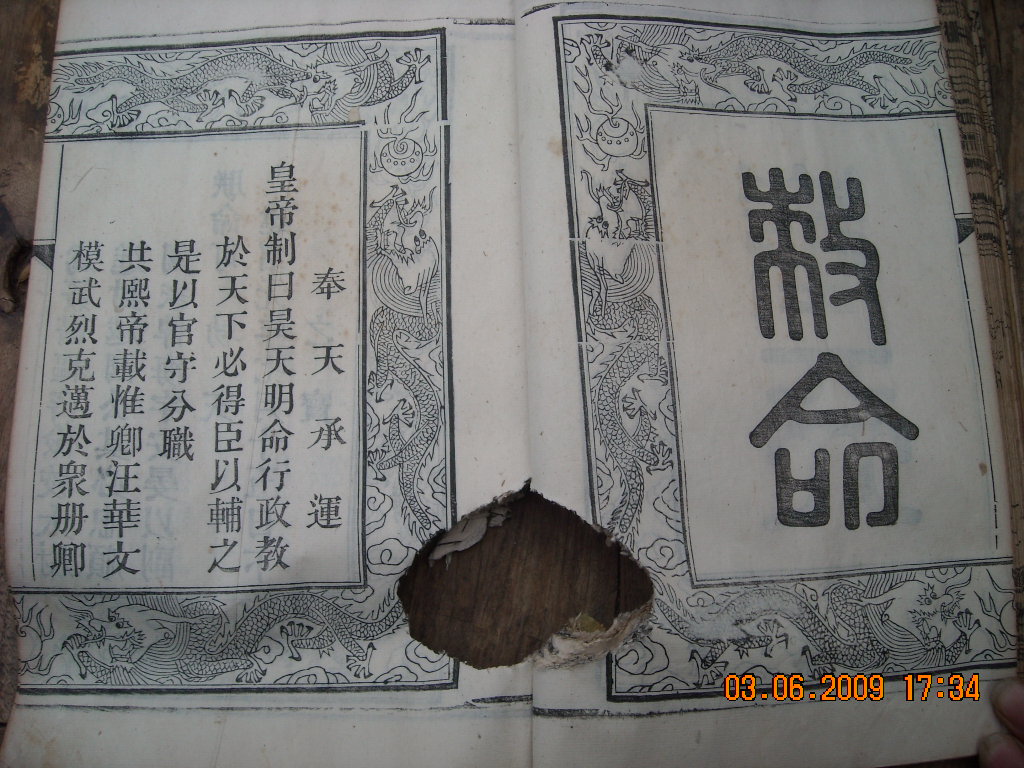 敕命
奉天承運
皇帝制曰昊天明命行政教
於天下必得臣以輔之
是以官守分職
共熙帝載惟卿汪華文
模武烈克邁於衆册卿
03.06.2009 17:34